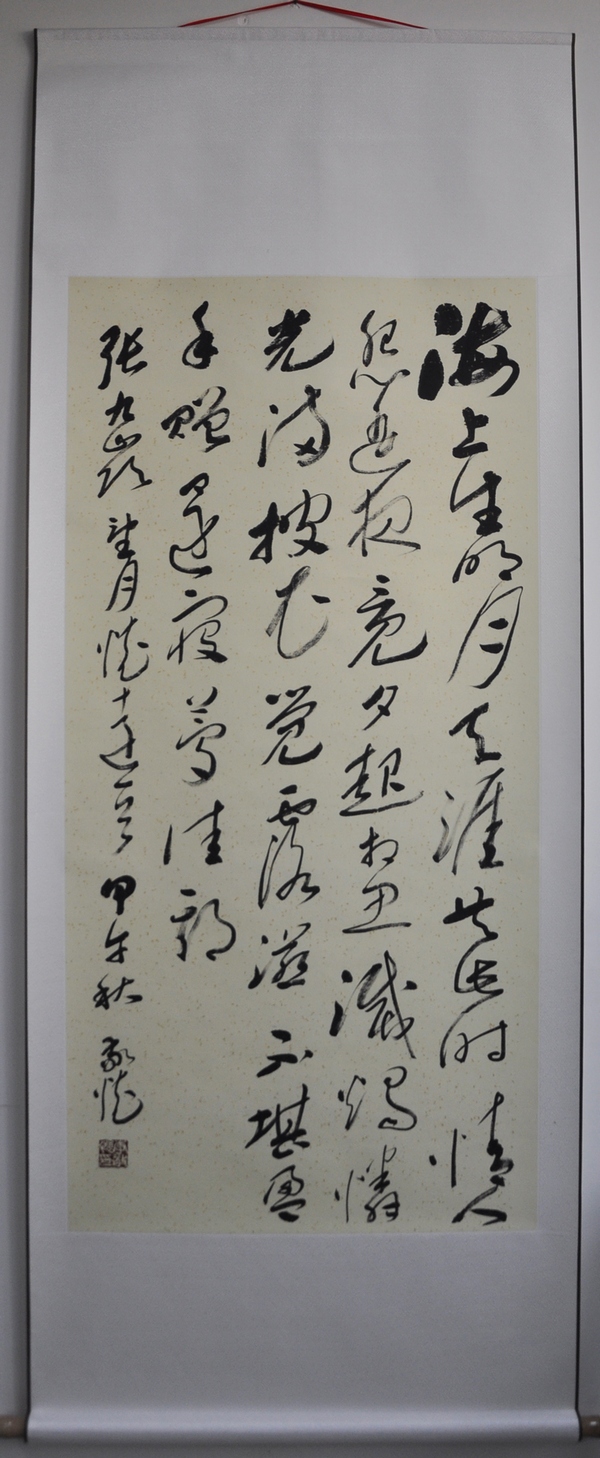 海上生明月天涯共此时情人
怨遥夜竟夕起相思滅燭憐
光满披衣觉露滋不堪盈
手赠還寝夢佳期
张九齡望月懷遠 甲午秋